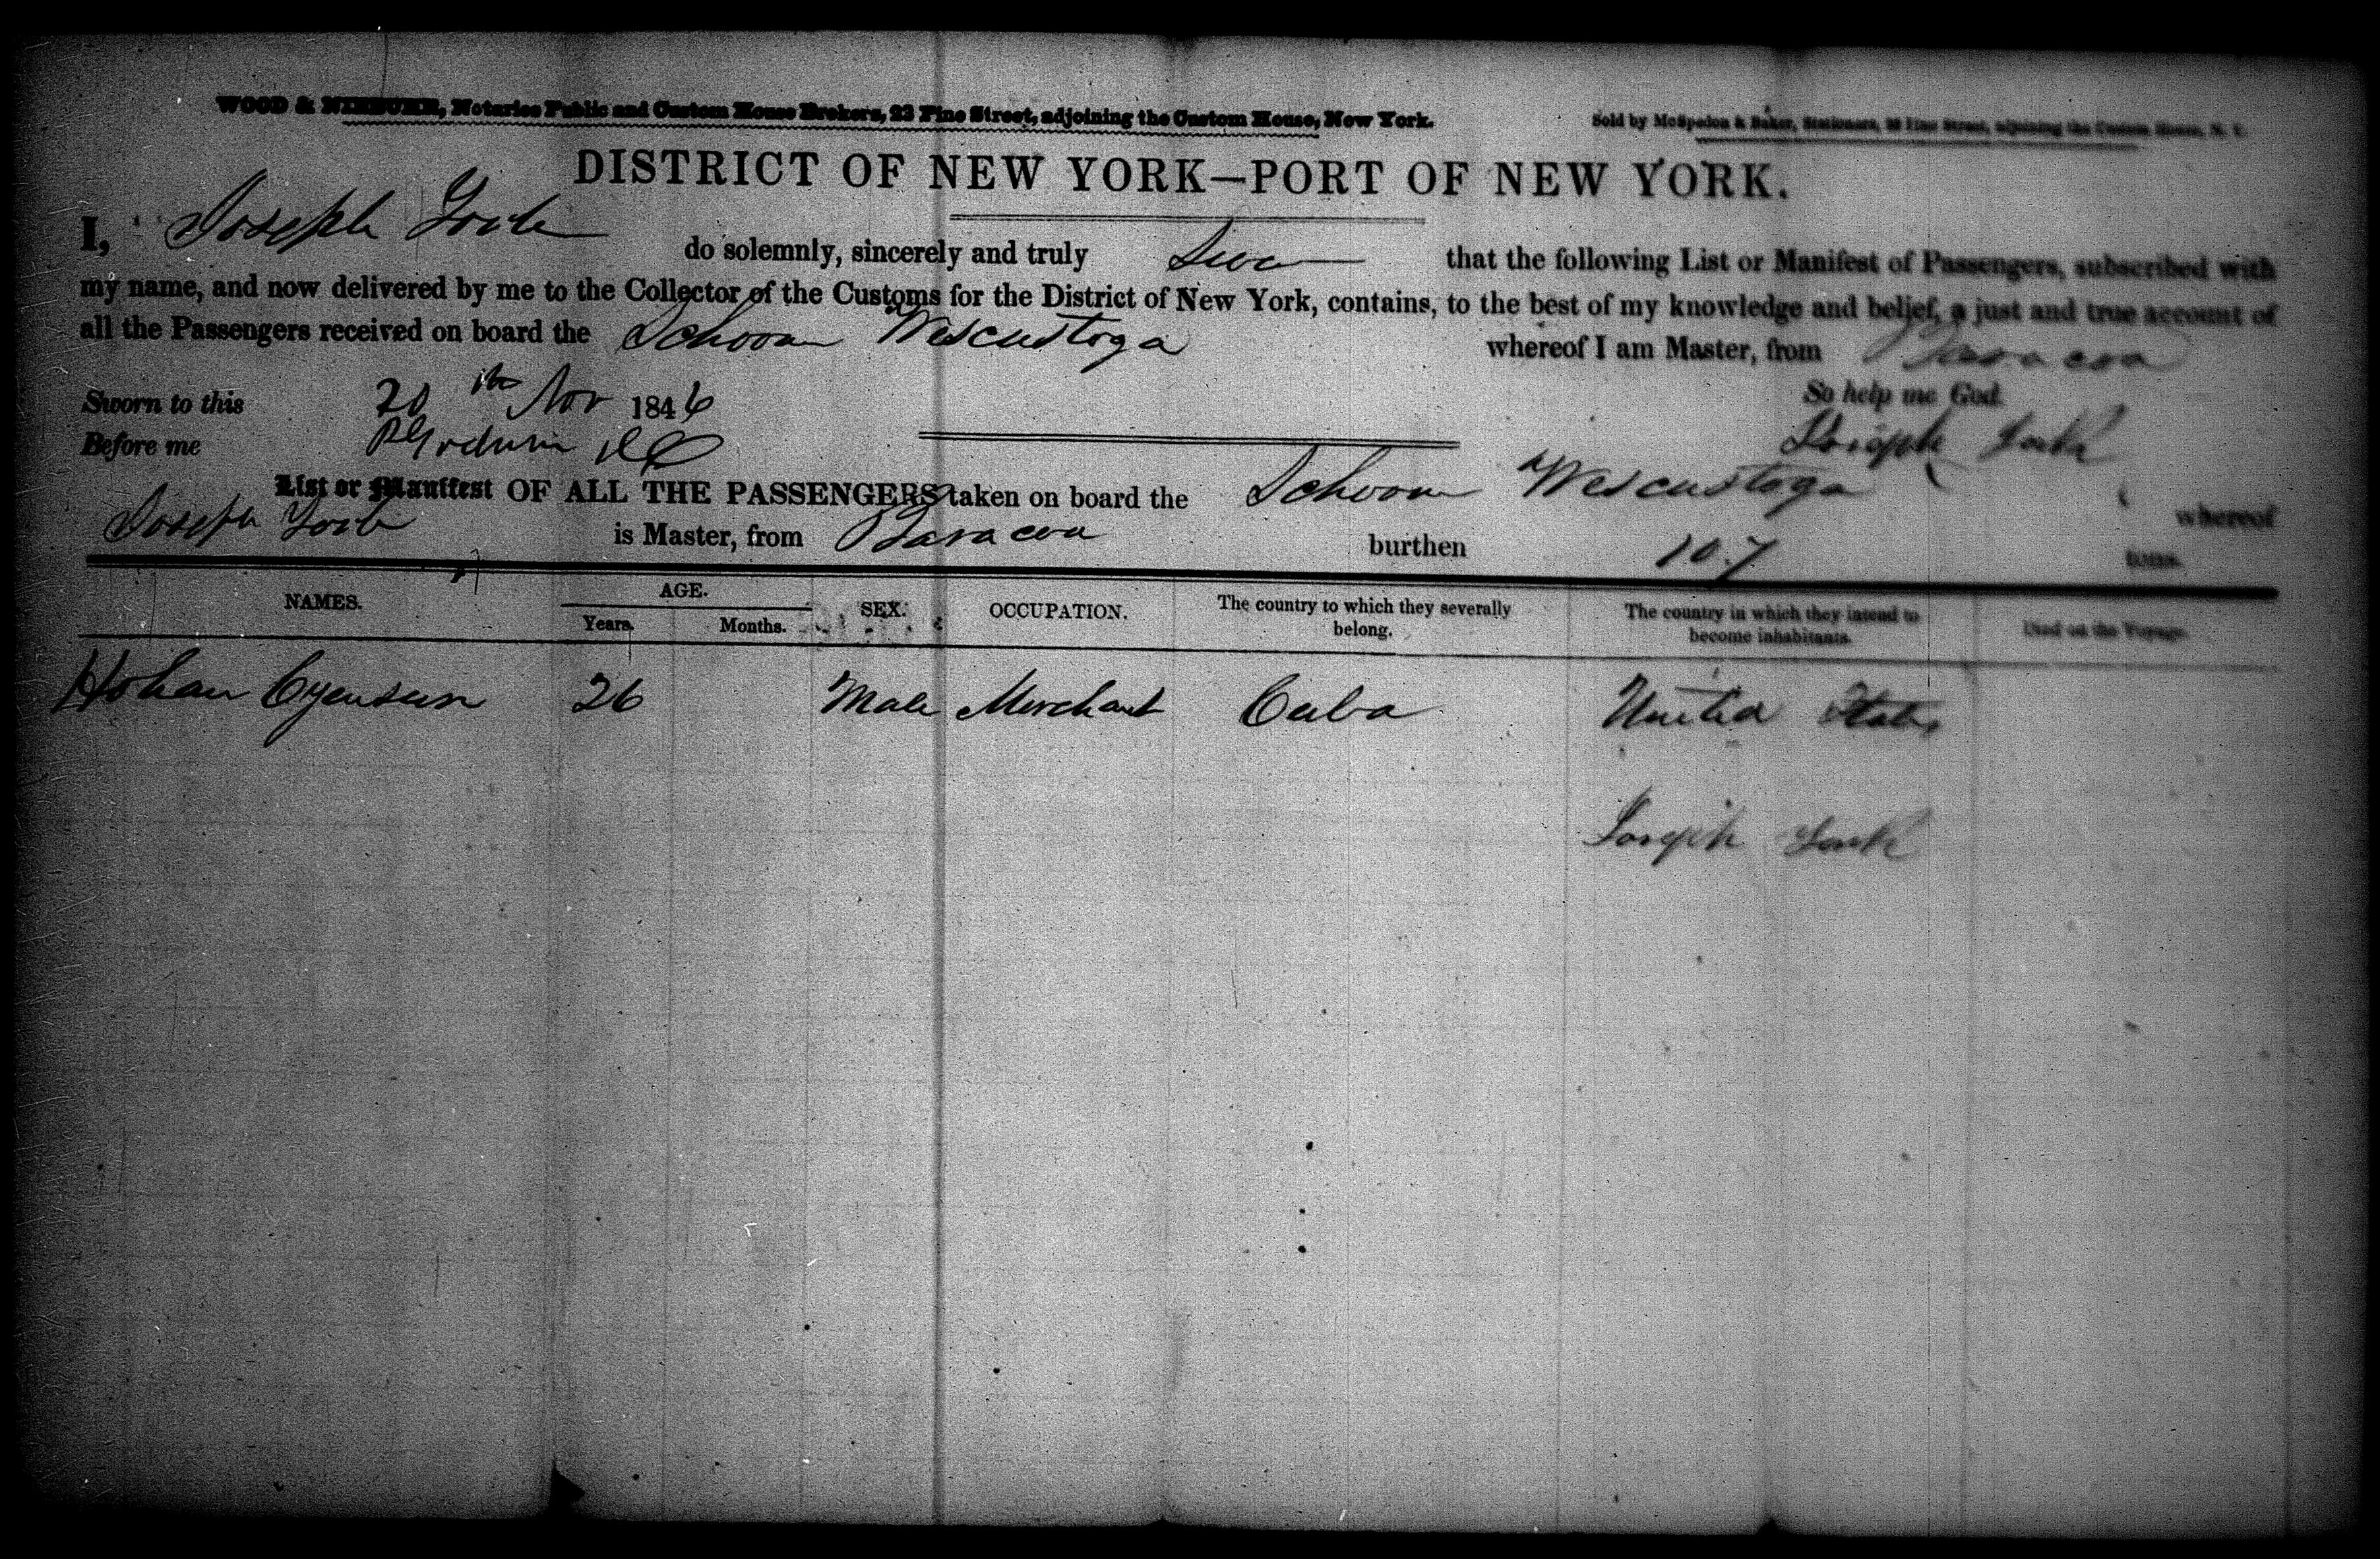 WOOD & NIEBUHR, Notaries Public and Custom House Brokers, 23 Pine Street, adjoining the Custom House, New York.
Sold by McSpedon & Baker, Stationers, Pine Street, adjoining the Custom House, N. Y.
DISTRICT OF NEW YORK—PORT OF NEW YORK.
I, Joseph York do solemnly, sincerely and truly Swear that the following List or Manifest of Passengers, subscribed with
my name, and now delivered by me to the Collector of the Customs for the District of New York, contains, to the best of my knowledge and belief, a just and true account of
all the Passengers received on board the Schoon Wescustoga whereof I am Master, from Baracoa
Sworn to this 20th Nov 1846 So help me God.
Before me Joseph York
List or Manifest OF ALL THE PASSENGERS taken on board the Schoon Wescustoga whereof
Joseph York is Master, from Baracoa burthen 107 tons.
NAMES. AGE. SEX. OCCUPATION. The country to which they severally belong. The country in which they intend to become inhabitants. Died on the Voyage.
Years. Months.
26 Male Merchant Cuba United States
Joseph York